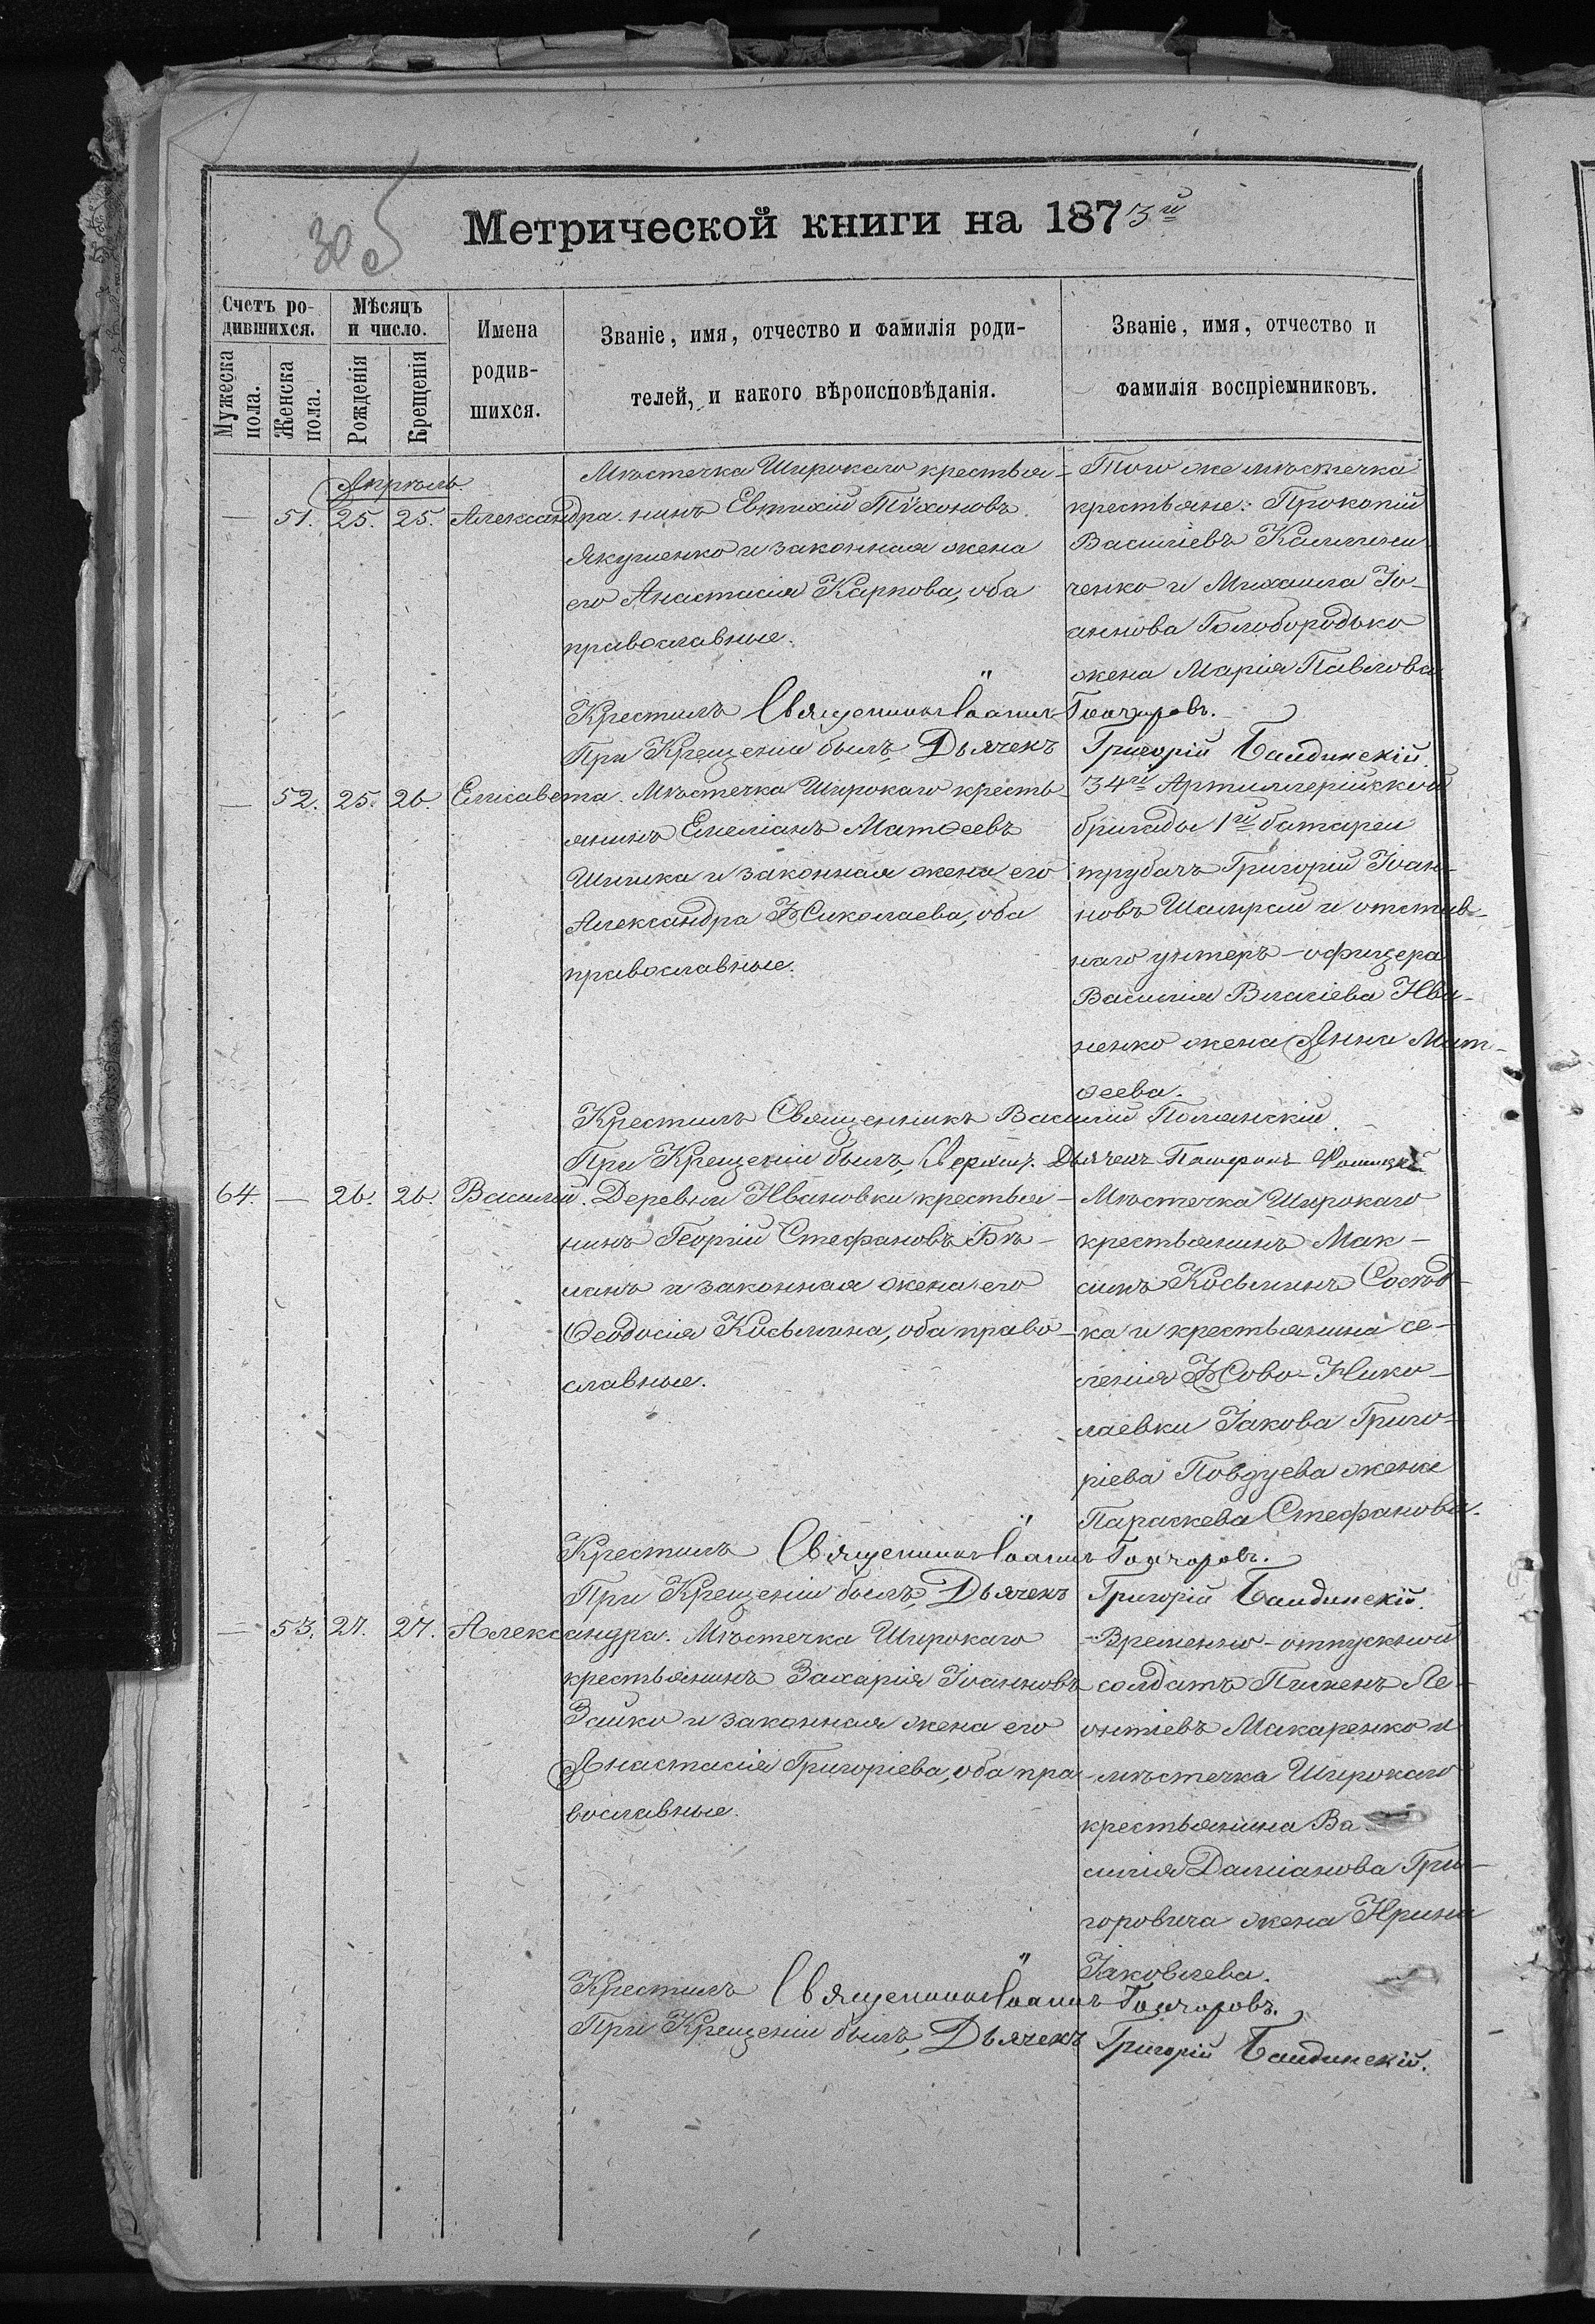 30 об
Метрической книги на 1873й
Счетъ ро-
дившихся.
Мужеска пола.
Женска пола.
Мѣсяцъ
и число.
Рожденія
Крещенія
Имена
родив-
шихся.
Званіе, имя, отчество и фамилія роди-
телей, и какого вѣроисповѣданія.
Званіе, имя, отчество и
фамилія воспріемниковъ.
Апрѣль.
— 51. 25. 25. Александра.
Мѣстечка Широкаго крестья-
нинъ Евтихій Тѵхоновъ
Якушенко и законная жена
его Анастасія Карпова, оба
православные.
Того же мѣстечка
крестьяне: Прокопій
Василіевъ Калини-
ченко и Михаила Іо-
аннова Голобородько
жена Марія Павлова
Крестилъ Священникъ Іоаннъ Гончаровъ.
При Крещеніи былъ, Дьячекъ Григорій Бандинскій.
— 52. 25. 26. Елисавета.
Мѣстечка Широкаго кресть-
янинъ Емеліанъ Матѳеевъ
Шишка и законная жена его
Александра Николаева, оба
православные.
34й Артиллерійской
бригады 1й батареи
трубачъ Григорій Іоан-
новъ Шамрай и отстав-
наго унтеръ-офицера
Василія Власіева Ива-
ненко жена Анна Мат-
ѳеева.
Крестилъ Священникъ Василій Полянскій.
При Крещеніи былъ, Дьячекъ
64. — 26. 26. Василій.
Деревни Ивановки крестья-
нинъ Георгій Стефановъ Бѣ-
ланъ и законная жена его
Ѳеодосія Косьмина, оба право-
славные.
Мѣстечка Широкаго
крестьянинъ Мак-
симъ Косьминъ
ка и крестьянина се-
ленія Ново-Нико-
лаевки Іакова Григо-
ріева жена
Параскева Стефанова.
Крестилъ Священникъ Іоаннъ Гончаровъ.
При Крещеніи былъ, Дьячекъ Григорій Бандинскій.
— 53. 27. 27. Александра.
Мѣстечка Широкаго
крестьянинъ Захарія Іоанновъ
Зайко и законная жена его
Анастасія Григоріева, оба пра-
вославные.
Временно-отпускной
солдатъ Пименъ Ле-
онтіевъ Макаренко и
мѣстечка Широкаго
крестьянина Ва-
силія Даміанова Гри-
горовича жена Ирина
Іаковлева.
Крестилъ Священникъ Іоаннъ Гончаровъ.
При Крещеніи былъ, Дьячекъ Григорій Бандинскій.